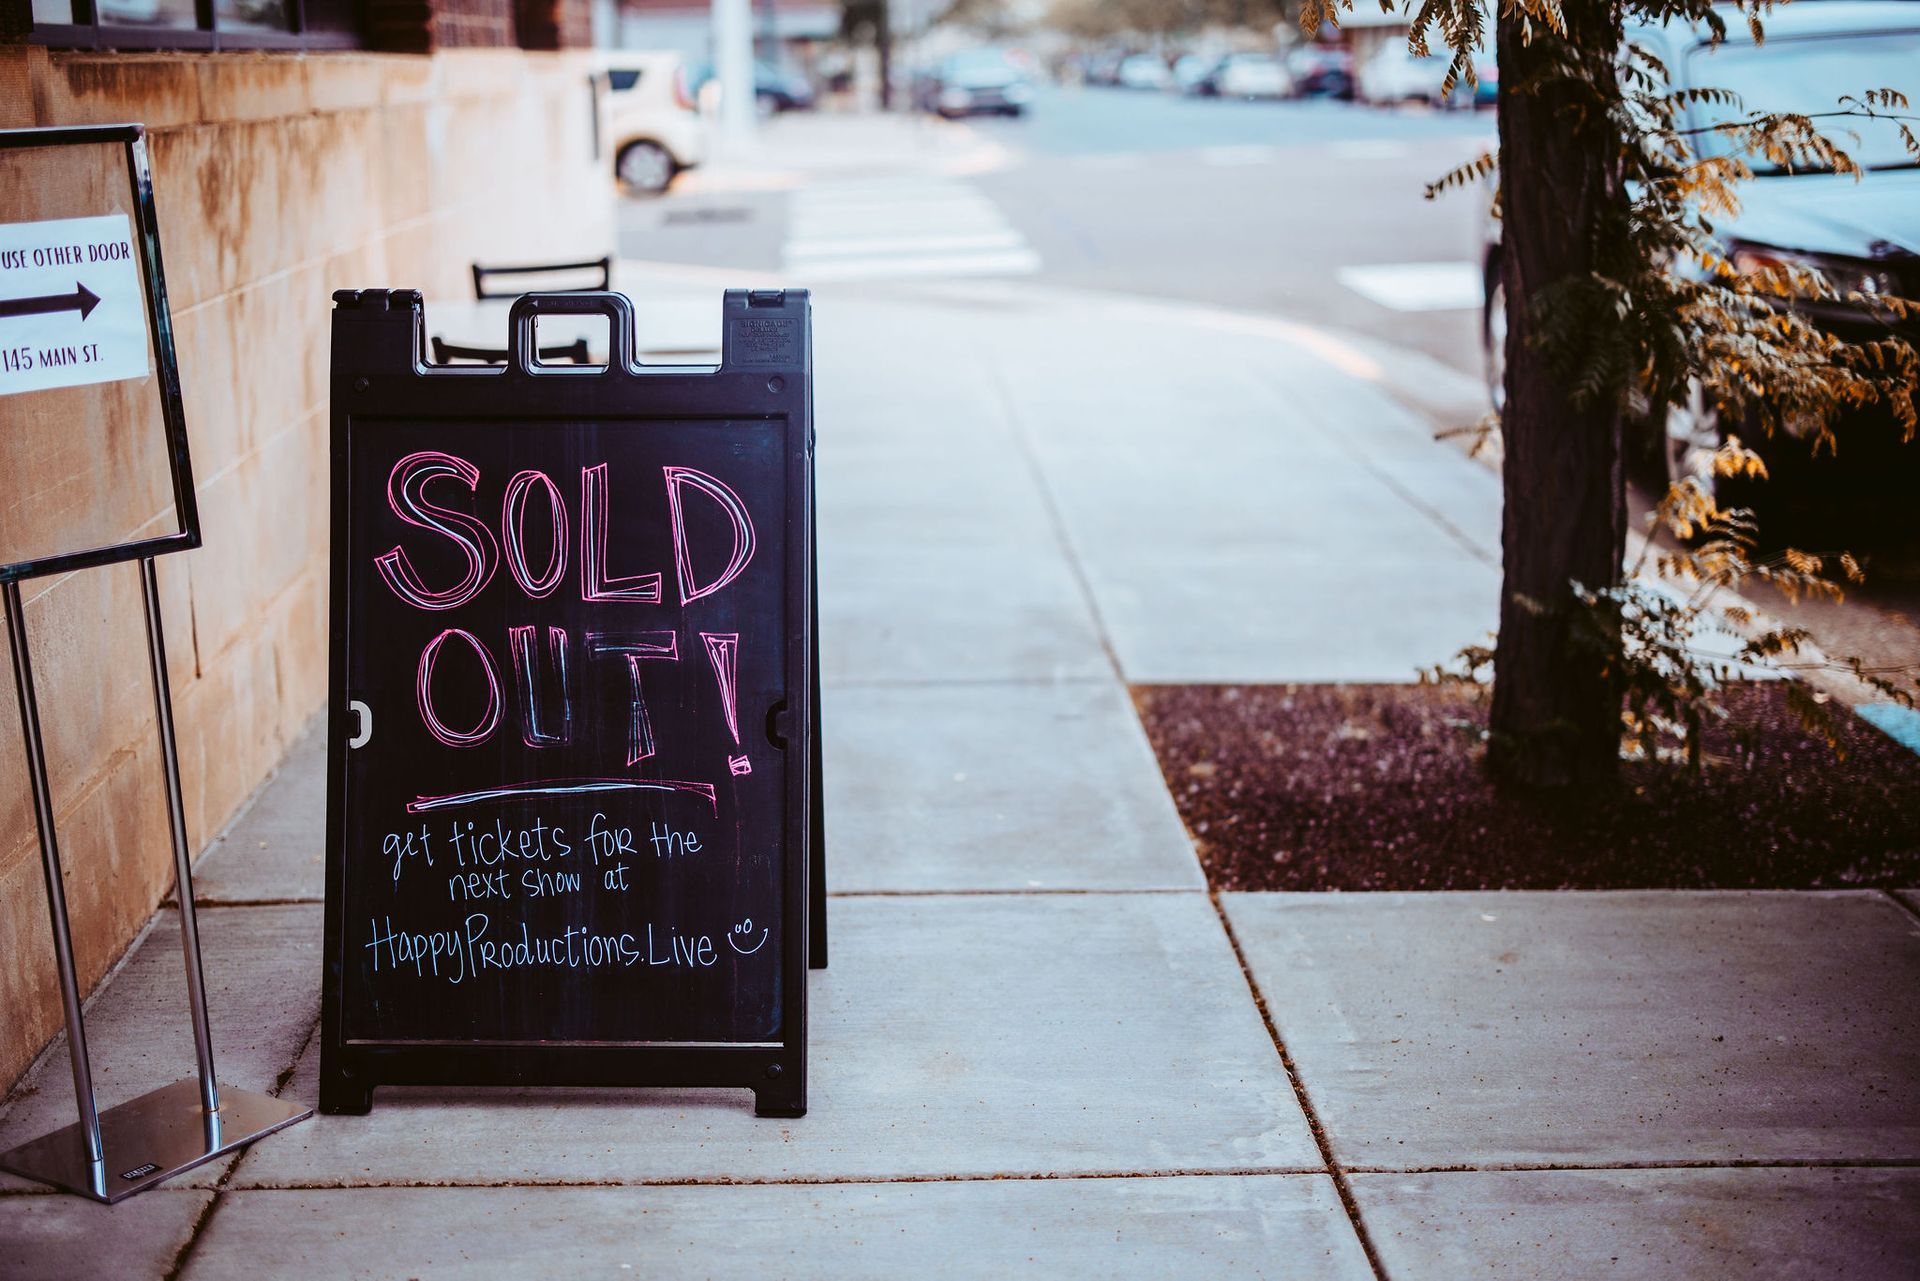 USE OTHER DOOR
145 MAIN ST.
SOLD
OUT!
get tickets for the
next show at
HappyProductions.Live